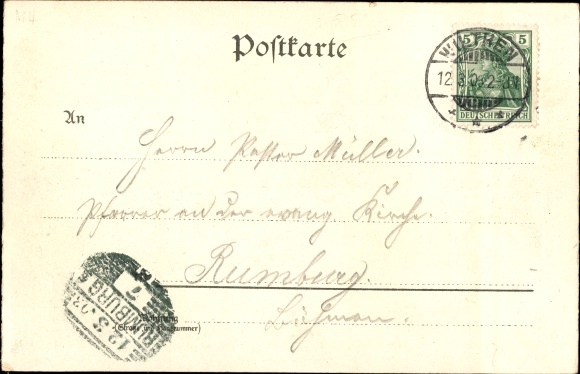 Postkarte
5 5
DEUTSCHES REICH
WILTHEN
12.3.0
An
Herrn Pastor Müller.
Pfarrer an der evang. Kirche.
Rumburg.
Böhmen.
(Straße und Hausnummer)
RUMBURG
12 3